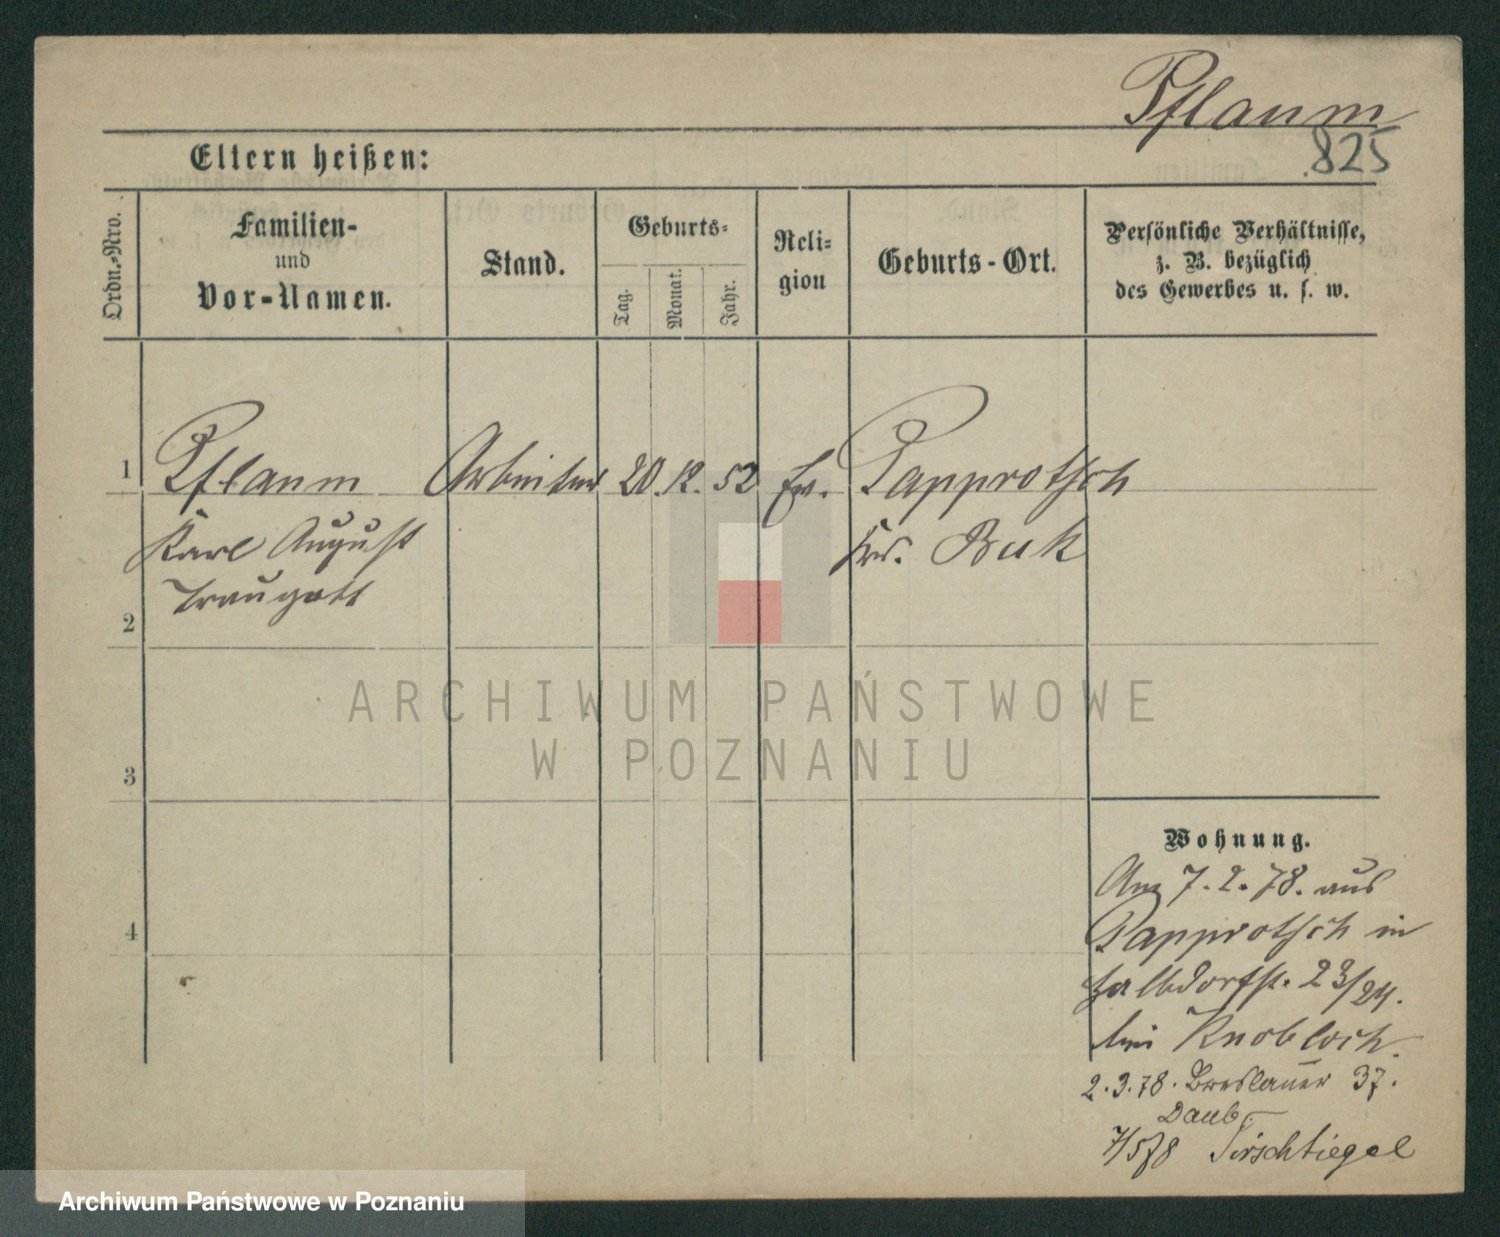 Pflaum
825
Eltern heißen:
Ordn.-Nro.
Familien-
und
Vor-Namen.
Stand.
Geburts-
Tag.
Monat.
Jahr.
Reli-
gion
Geburts-Ort.
Persönliche Verhältnisse,
z. B. bezüglich
des Gewerbes u. s. w.
1 Pflaum Arbeiter 20. 12. 52 ev. Papprotsch
Karl August Krs. Buk
Traugott
2
3
4
ARCHIWUM PAŃSTWOWE
W POZNANIU
Wohnung.
Ang 7. 2. 78. aus
Papprotsch in
Halbdorfst. 23/24.
bei Knobloch.
2. 3. 78. Breslauer 37.
Daub
7/5 78 Tirschtiegel
Archiwum Państwowe w Poznaniu